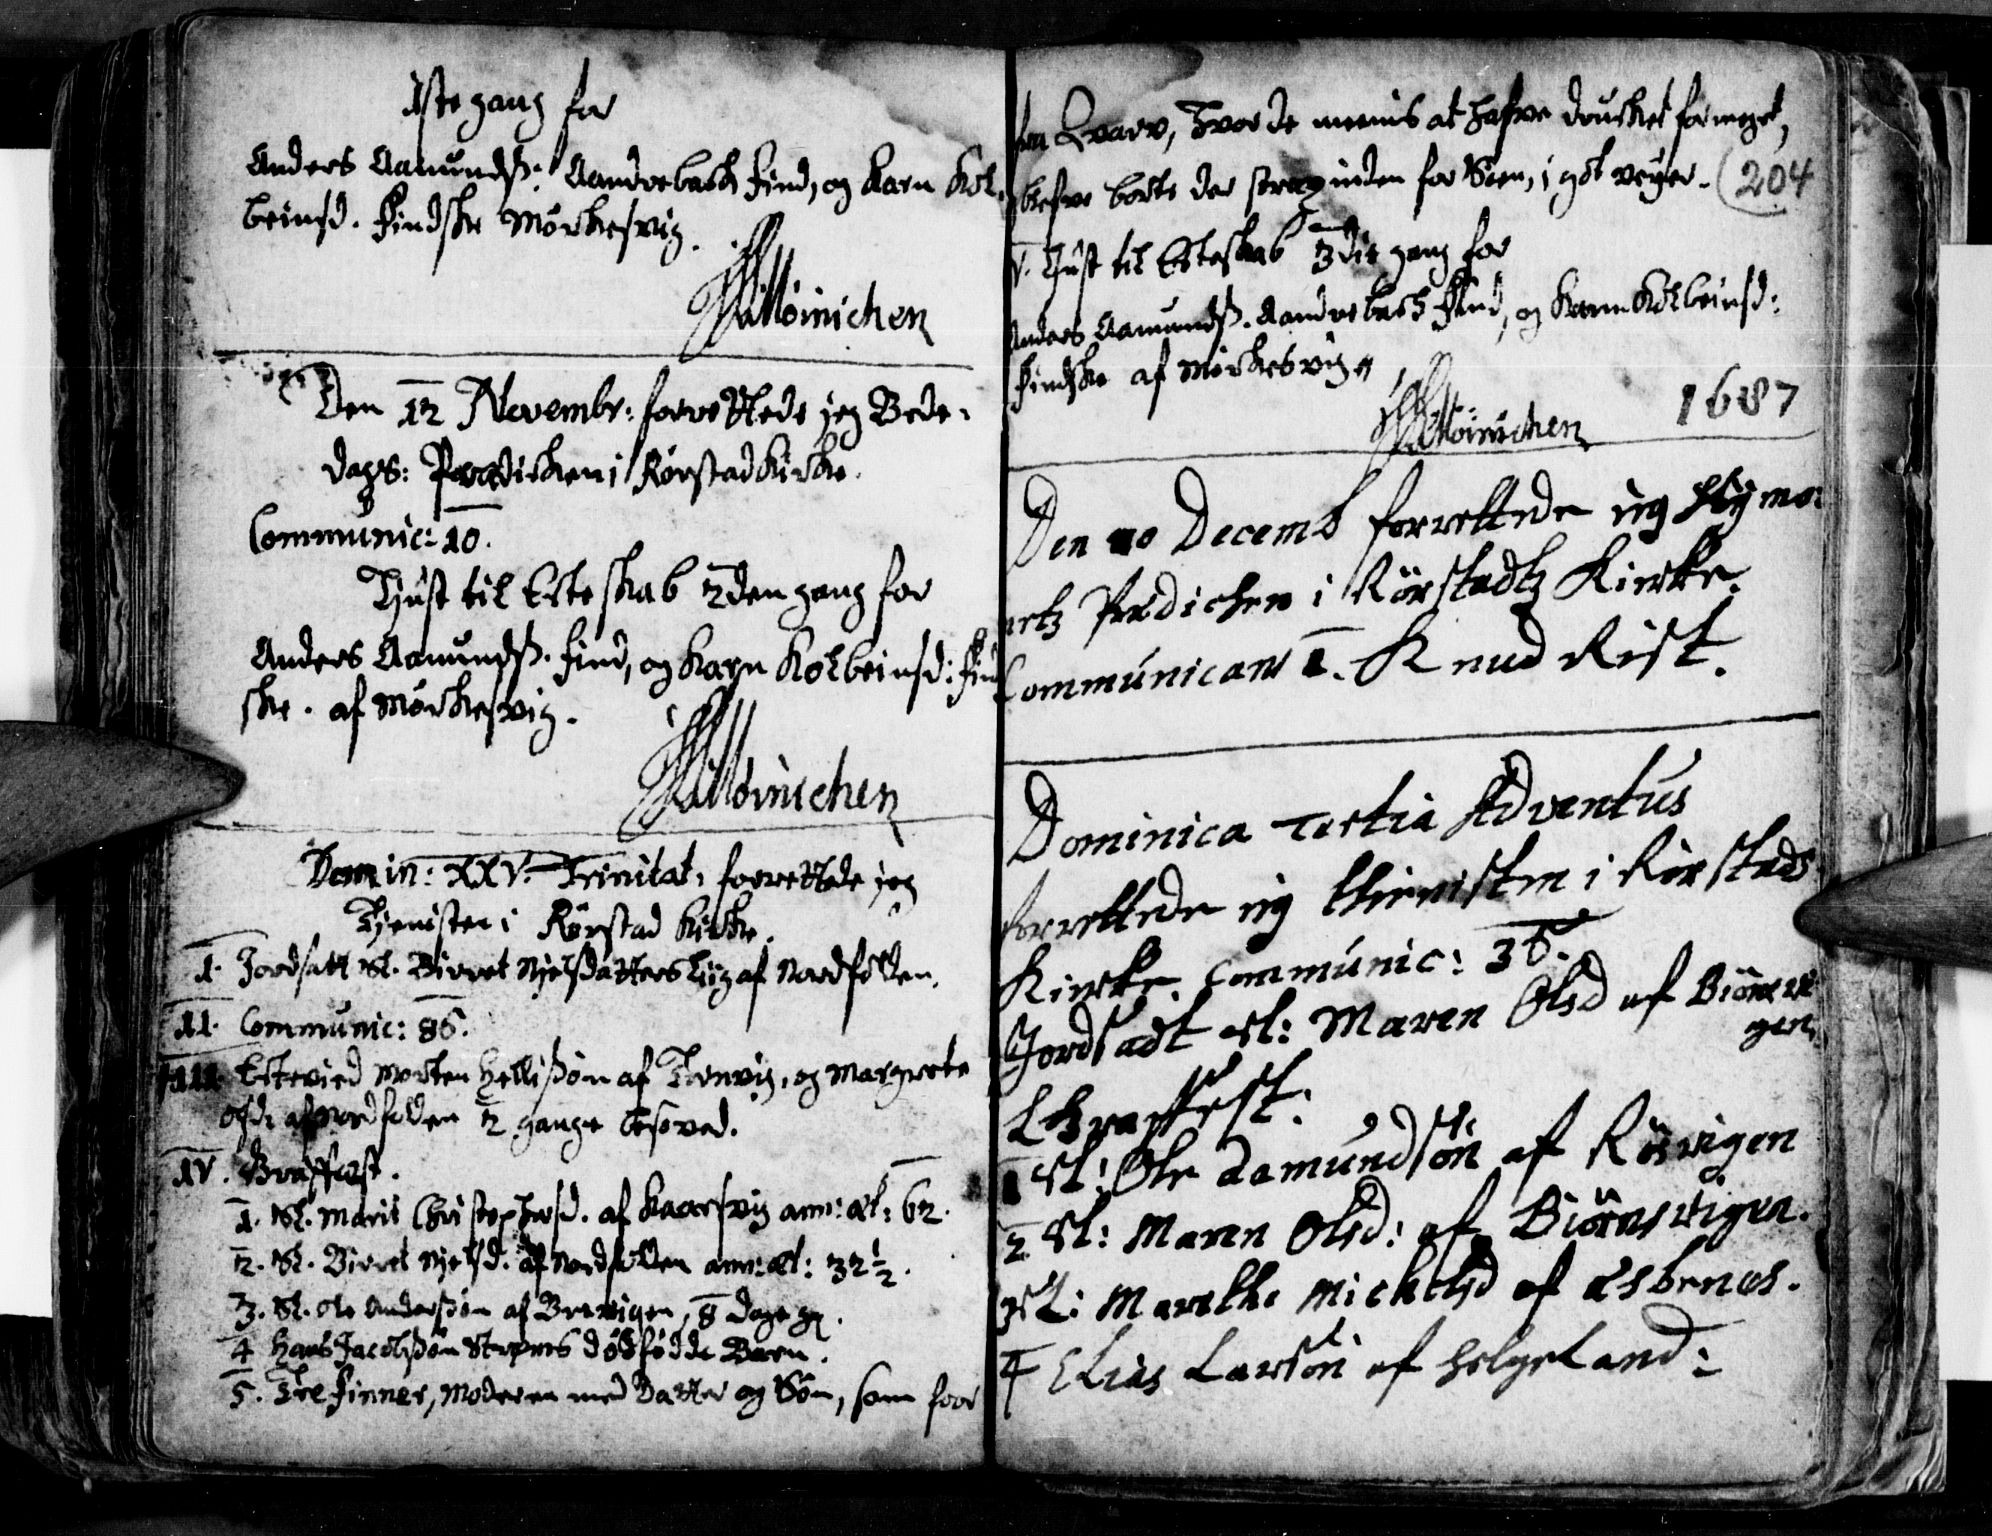 1ste gang for
Anders Aamundß: Aandrebach Find, og Karn Kol-
beinsd. Findske Mørkesvig.
Møinichen
Den 12 Novembr: forrettede jeg Bede-
dags: Prædicken i Rørstad Kircke.
Communic: 10.
Liust til Ecteskab 2den gang for
Anders Aamundß. Find, og Karn Kolbeinsd: Find
ske. af Mørkesvig.
Møinichen
Domin: XXV. Trinitat: forrettede jeg
Tjenisten i Rørstad Kircke.
1. Jordsatt Sl. Birret Njelsdatters Liig af Nordfolden.
11. Communic: 86.
111. Ectevied Morten Hellißøn af Tennvig, og Margrete
Olsd: af Nordfolden 2 gange besoved.
1V. Graffæst.
1. Sl. Marit Christophersd. af Kaarsvig ann: æt: 62.
2. Sl. Birret Njelsd. af Nordfolden ann: æt: 32 1/2.
3. Sl. Ole Anderßøn af Brevigen, 8 Dage gl.
4 Hans Jacobßøn dødfødde Barn.
5. Tre Finner, Moderen med Datter og Søn, som foor
fra Qvarv, hvor de meenis at hafve drucket for meget,
blefve borte der strax inden for Søen, i got veyer. 204
V. Liust til Ecteskab 3die gang for
Anders Aamundß. Aandrebach Find, og Karn Kolbeinsd:
Findske af Mørkesvig
Møinichen 1687
Den 10 Decemb forrettede jeg Hyme-
Prædichen i Rörstadtz Kircke.
Communicant 1. Knud Rist.
Dominica Tertia Adventus
forrettede jeg thienisten i Rörstads
Kircke. Communic: 36.
Jordsadt Sl: Maren Olsd af Biörnevi
gen.
Graffest:
1 Sl: Ole Aamundsön af Rösvigen
2 Sl: Maren Olsd: af Biörnevigen.
3 Sl: Marethe Michelsd af Esbenos.
4 Elias Larsön af helgeland: